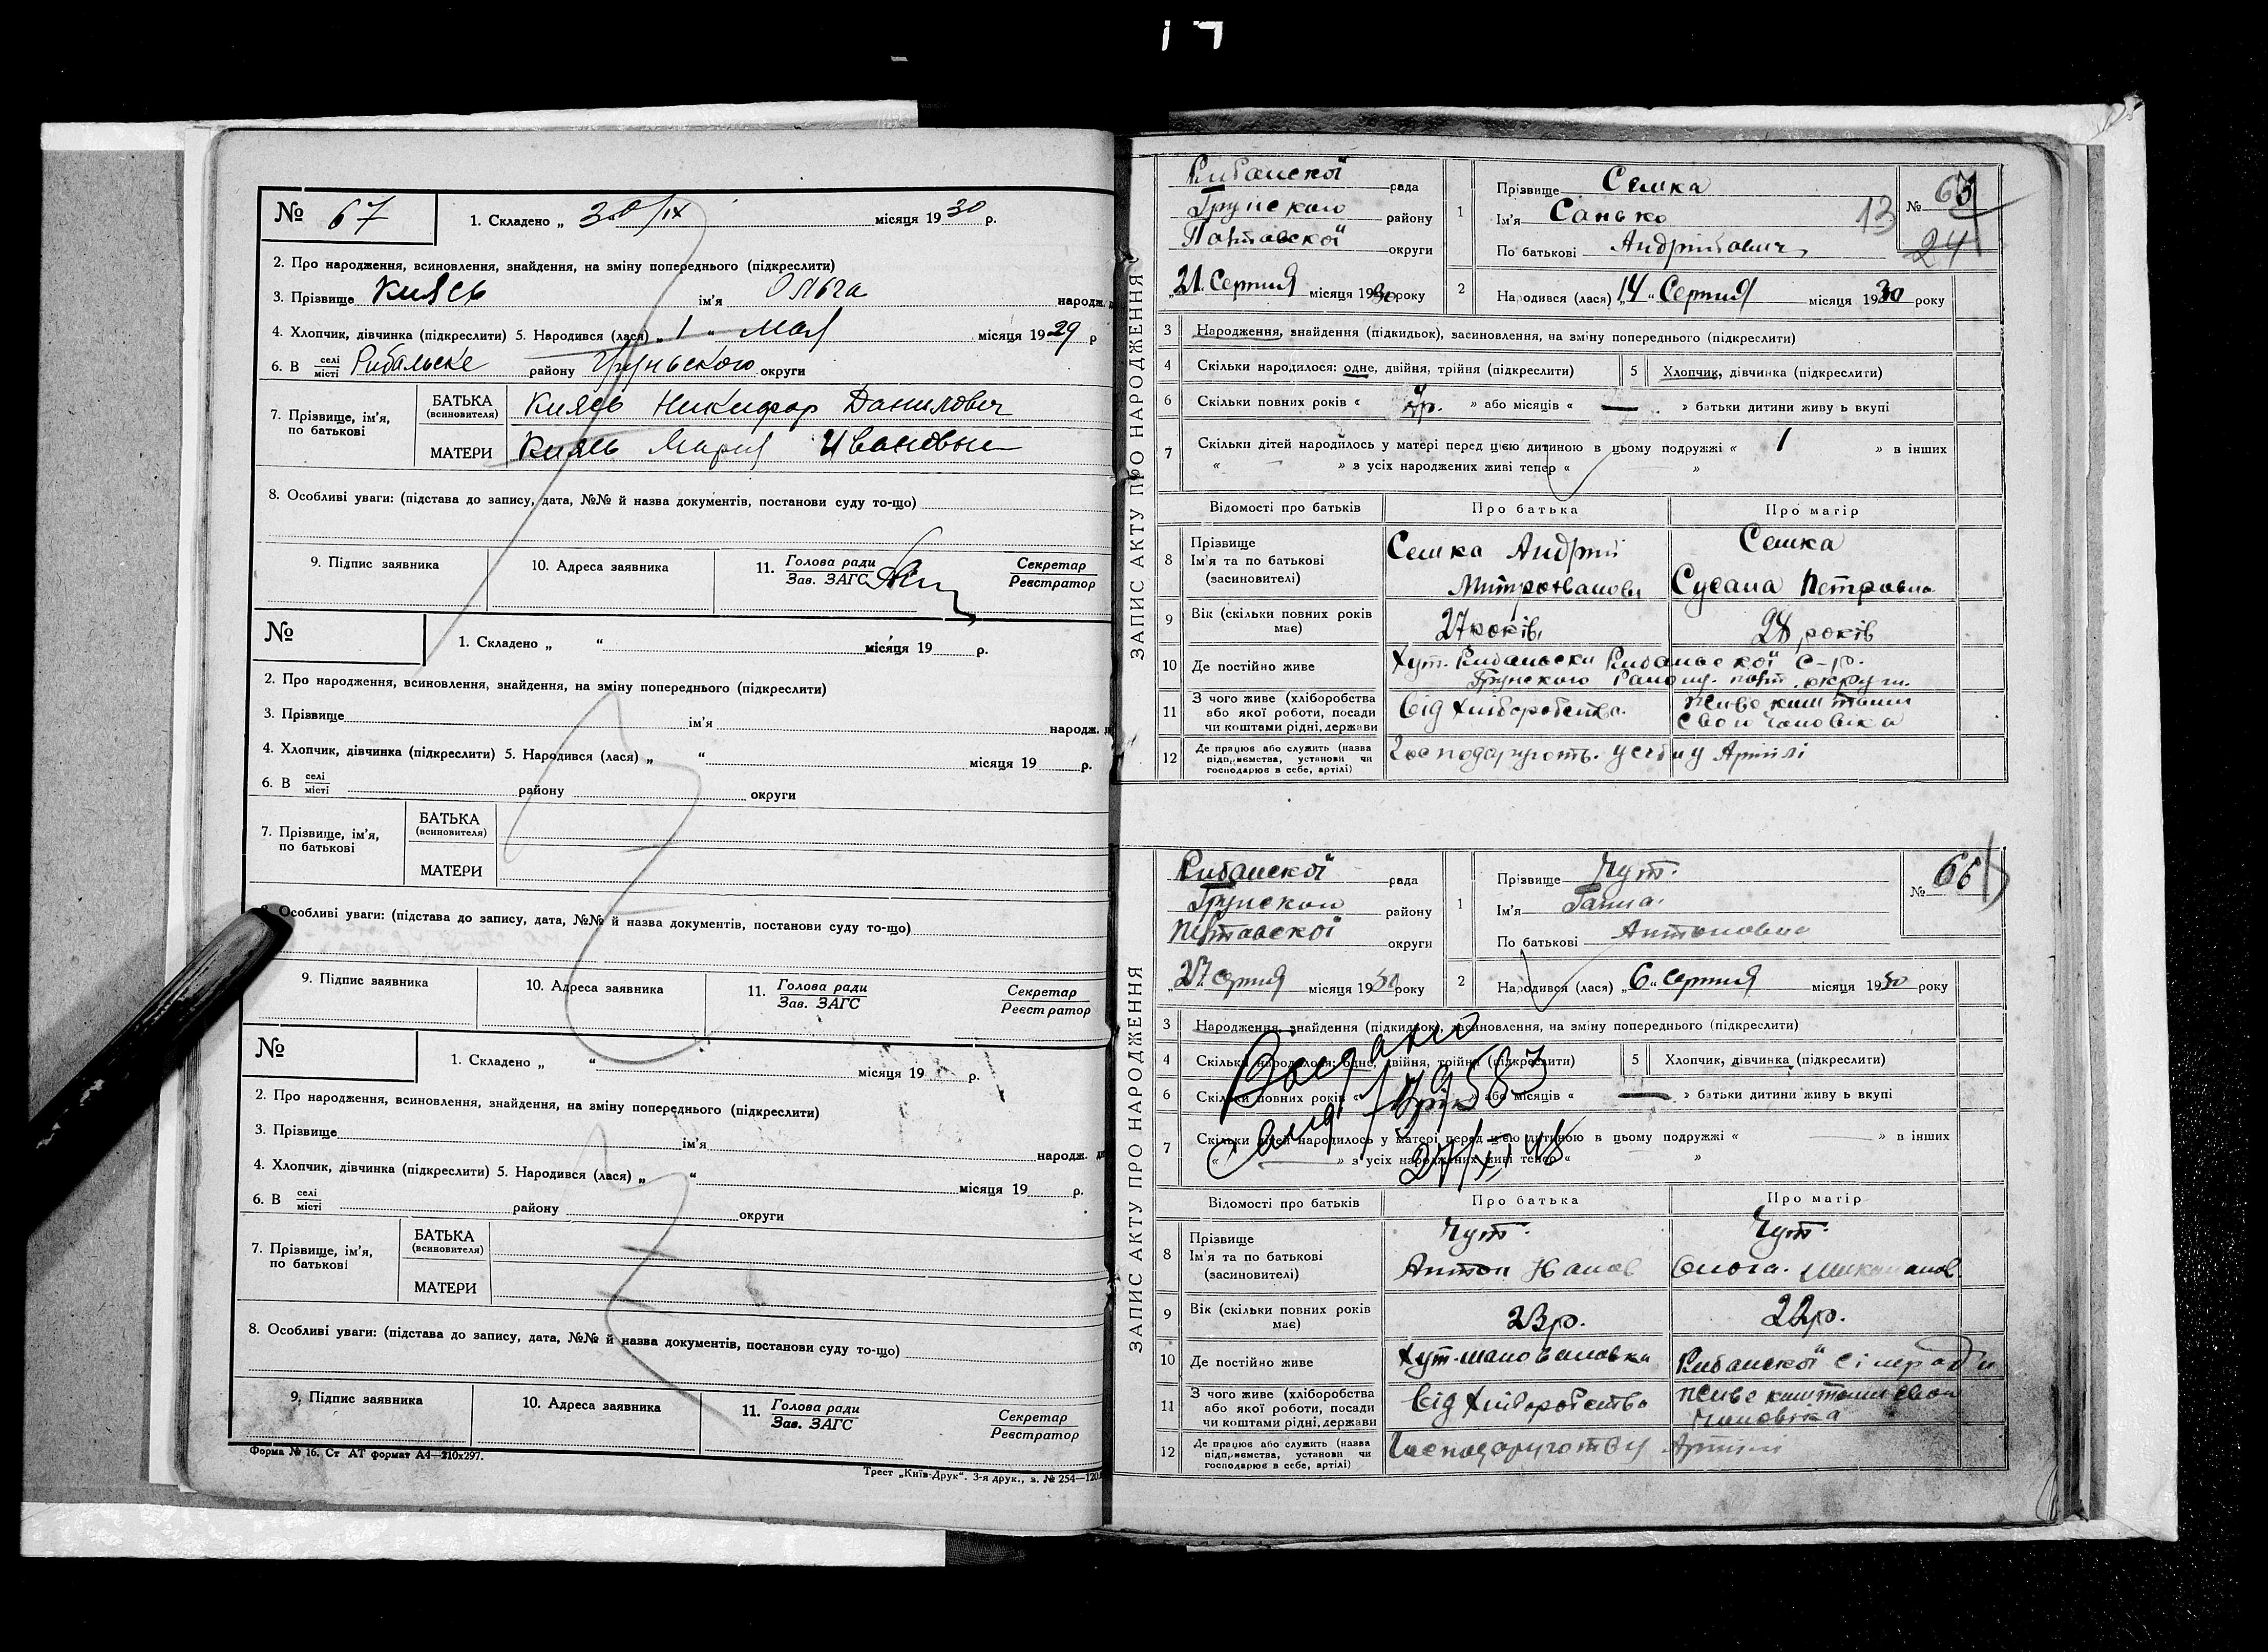 № 67
1. Складено „ 30/IX місяця 1930 р.
2. Про народження, всиновлення, знайдення, на зміну попереднього (підкреслити)
3. Прізвище Князь ім'я Ольга народж.
4. Хлопчик, дівчинка (підкреслити) 5. Народився (лася) „ 1 “ Мая місяця 1929 р
6. В селі місті Рибальске району Груньського округи
7. Прізвище, ім'я, по батькові
БАТЬКА (всиновителя) Князь Никифор Данилович
МАТЕРИ Князь Мария Ивановы
8. Особливі уваги: (підстава до запису, дата, №№ й назва документів, постанови суду то-що)
9. Підпис заявника 10. Адреса заявника 11. Голова ради Зав. ЗАГС Секретар Реєстратор
№
1. Складено „ “ місяця 19 р.
2. Про народження, всиновлення, знайдення, на зміну попереднього (підкреслити)
3. Прізвище ім'я народж.
4. Хлопчик, дівчинка (підкреслити) 5. Народився (лася) „ “ місяця 19 р.
6. В селі місті району округи
7. Прізвище, ім'я, по батькові
БАТЬКА (всиновителя)
МАТЕРИ
Особливі уваги: (підстава до запису, дата, №№ й назва документів, постанови суду то-що)
9. Підпис заявника 10. Адреса заявника 11. Голова ради Зав. ЗАГС Секретар Реєстратор
№
1. Складено „ “ місяця 19 р.
2. Про народження, всиновлення, знайдення, на зміну попереднього (підкреслити)
3. Прізвище ім'я народж.
4. Хлопчик, дівчинка (підкреслити) 5. Народився (лася) „ “ місяця 19 р.
6. В селі місті району округи
7. Прізвище, ім'я, по батькові
БАТЬКА (всиновителя)
МАТЕРИ
8. Особливі уваги: (підстава до запису, дата, №№ й назва документів, постанови суду то-що)
9. Підпис заявника 10. Адреса заявника 11. Голова ради Зав. ЗАГС Секретар Реєстратор
Форма № 16. Ст АТ формат А4—210х297.
Трест „Київ-Друк“. 3-я друк., з. № 254—120.
ЗАПИС АКТУ ПРО НАРОДЖЕННЯ
Рибанскої рада
Грунского району
Полтавскої округи
„21. Серпня місяця 1930 року
1 Прізвище Семка
Ім'я Санько 13
По батькові Андрійович
№ 24
2 Народився (лася) „14“ Серпня місяця 1930 року
3 Народження, знайдення (підкидьок), засиновлення, на зміну попереднього (підкреслити)
4 Скільки народилося: одне, двійня, трійня (підкреслити) 5 Хлопчик, дівчинка (підкреслити)
6 Скільки повних років « р. » або місяців « — » батьки дитини живуть вкупі
7 Скільки дітей народилось у матері перед цією дитиною в цьому подружжі « 1 » в інших
« — » з усіх народжених живі тепер « »
Відомості про батьків Про батька Про матір
8 Прізвище Ім'я та по батькові (засиновителі)
Семка Андрій
Семка
Сусана Петровна
9 Вік (скільки повних років має) 27 років 28 років
10 Де постійно живе Хут. Рибальски Рибальскої С-р.
Грунского Району. Полт. округи.
11 З чого живе (хліборобства або якої роботи, посади чи коштами рідні, держави
Від Хліборобства.
живе коштами
свого чоловіка
12 Де працює або служить (назва підприємства, установи чи господарює в себе, артілі)
Господарують. у Артілі
ЗАПИС АКТУ ПРО НАРОДЖЕННЯ
Рибанскої рада
Грунского району
Полтавскої округи
„27 серпня місяця 1930 року
1 Прізвище Чут.
Ім'я Ганна.
По батькові Антоновна
№ 66
2 Народився (лася) „6“ серпня місяця 1930 року
3 Народження, знайдення (підкидьок), засиновлення, на зміну попереднього (підкреслити)
4 Скільки народилося: одне, двійня, трійня (підкреслити) 5 Хлопчик, дівчинка (підкреслити)
6 Скільки повних років « » або місяців « — » батьки дитини живуть вкупі
7 Скільки дітей народилось у матері перед цією дитиною в цьому подружжі « — » в інших
« — » з усіх народжених живі тепер « »
Відомості про батьків Про батька Про матір
8 Прізвище Ім'я та по батькові (засиновителі)
Чут.
Антон Іванов
Чут.
9 Вік (скільки повних років має) 23р. 22р.
10 Де постійно живе Рибанскої Сільради
11 З чого живе (хліборобства або якої роботи, посади чи коштами рідні, держави
Від Хліборобства
живе коштами свого
Чоловіка
12 Де працює або служить (назва підприємства, установи чи господарює в себе, артілі)
Господарують у Артілі